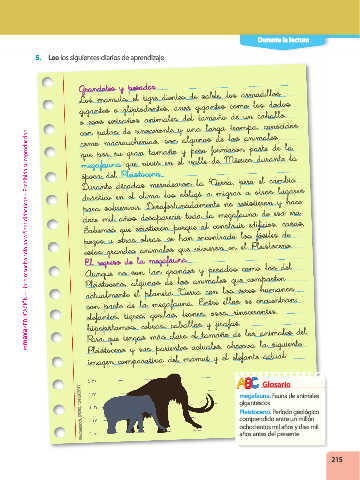 Durante la lectura
5. Leo los siguientes diarios de aprendizaje
Grandotes y pesados
Los mamuts, el tigre dientes de sable, los armadillos
gigantes o gliptodontes, aves gigantes como los dodos
o esos extraños animales del tamaño de un caballo
con patas de rinoceronte y una larga trompa, conocidos
como macrauchenias, son algunos de los animales
que por su gran tamaño y peso formaron parte de la
megafauna que vivió en el valle de México durante la
época del Pleistoceno.
Durante décadas merodearon la Tierra, pero el cambio
drástico en el clima los obligó a migrar a otros lugares
para sobrevivir. Desafortunadamente no resistieron y hace
diez mil años desapareció toda la megafauna de esa era.
Sabemos que existieron porque al construir edificios, casas,
pozos u otras obras, se han encontrado los fósiles de
estos grandes animales que vivieron en el Pleistoceno.
El regreso de la megafauna
Aunque no son tan grandes y pesados como los del
Pleistoceno, algunos de los animales que comparten
actualmente el planeta Tierra con los seres humanos
son parte de la megafauna. Entre ellos se encuentran:
elefantes, tigres, gorilas, leones, osos, rinocerontes,
hipopótamos, cebras, caballos y jirafas.
Para que tengas más claro el tamaño de los animales del
Pleistoceno y sus parientes actuales, observa la siguiente
imagen comparativa del mamut y el elefante actual.
ABC Glosario
megafauna. Fauna de animales
gigantescos
Pleistoceno. Período geológico
comprendido entre un millón
ochocientos mil años y diez mil
años antes del presente
215